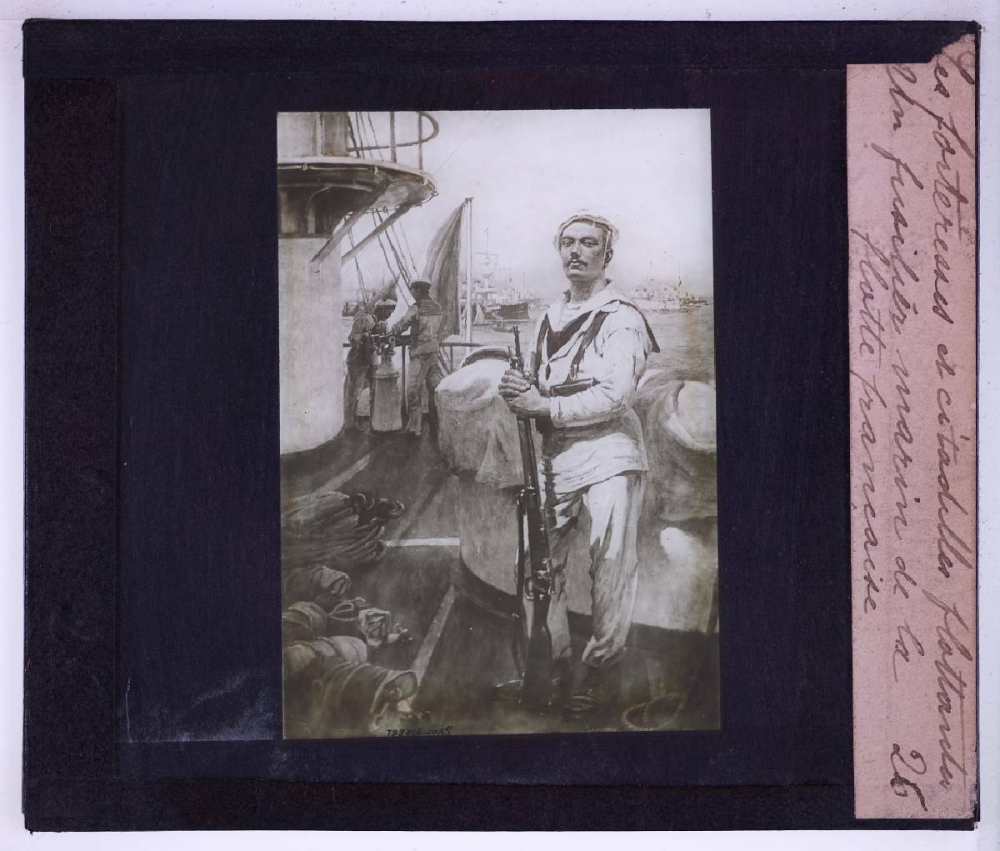 Les forteresses et citadelles flottantes
I
Un fusilier marin de la
flotte francaise
25